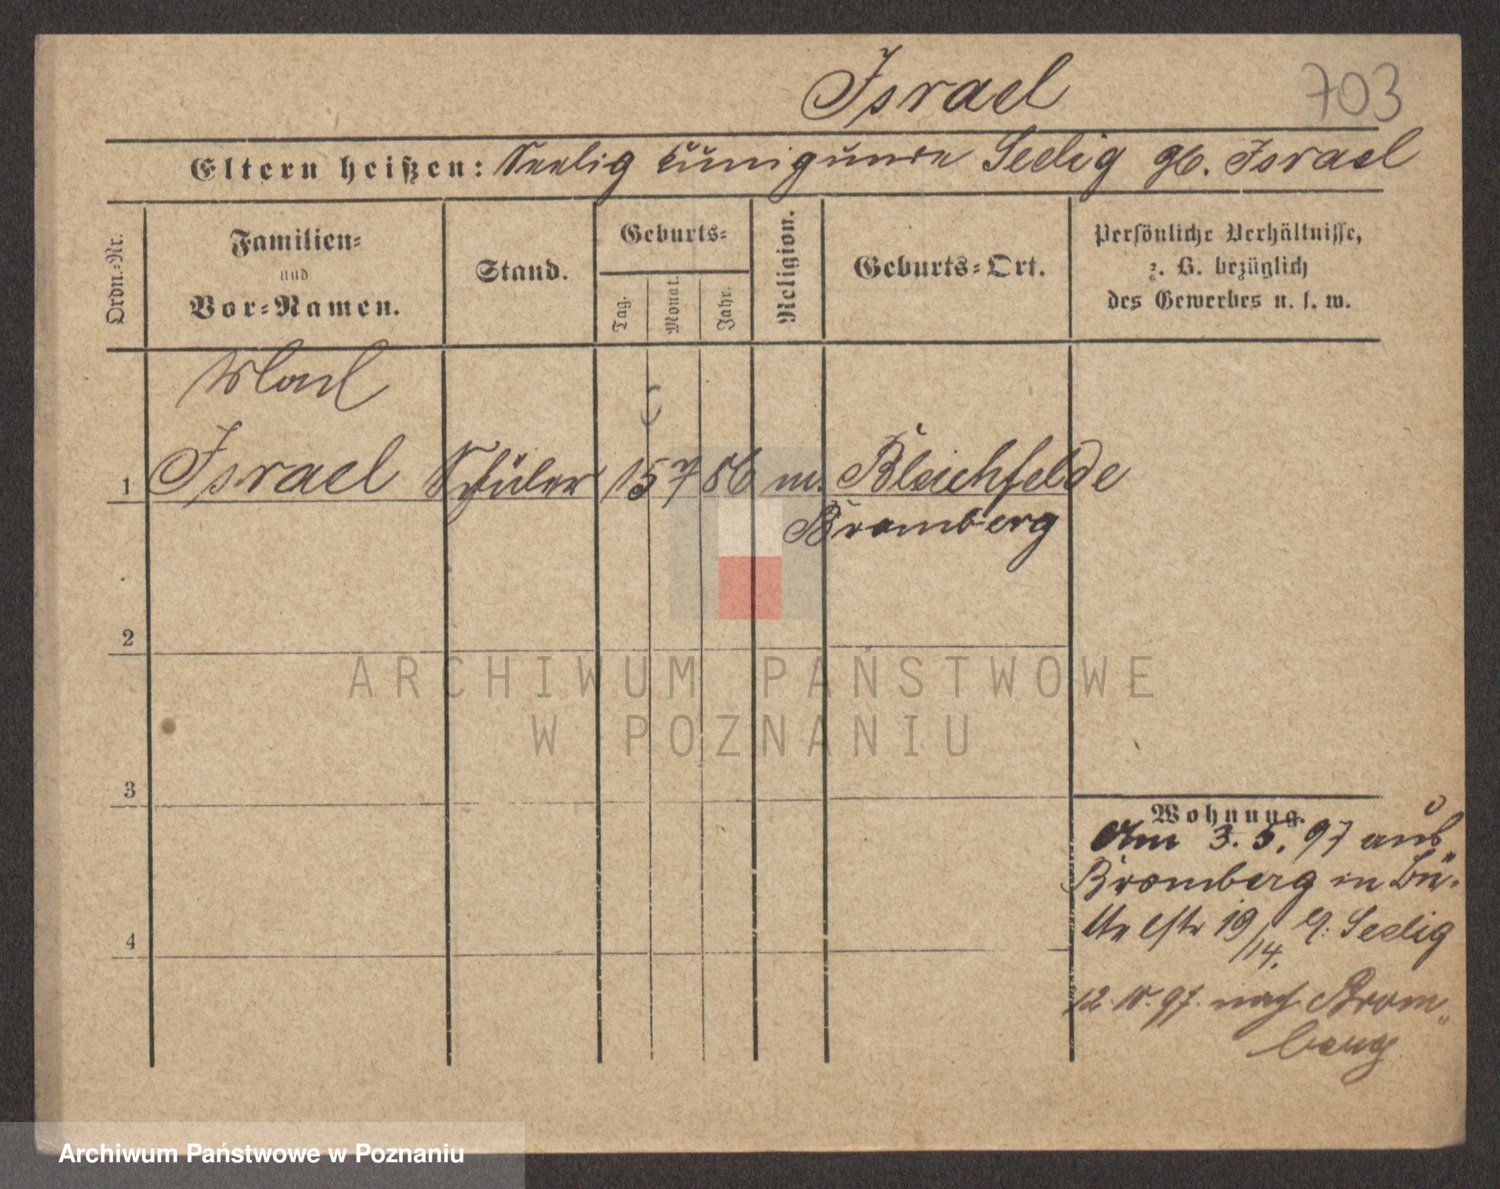 Israel
703
Eltern heißen: Seelig Kunigunde Seelig gb. Israel
Ordn.-Nr.
Familien-
und
Vor-Namen.
Stand.
Geburts-
Tag.
Monat.
Jahr.
Religion.
Geburts-Ort.
Persönliche Verhältnisse,
z. B. bezüglich
des Gewerbes u. s. w.
1 Israel Schüler 15 7 86 m. Bleichfelde
Bromberg
2
3
4
Wohnung.
Am 3. 5. 97 aus
Bromberg in Bü-
19/14. Seelig
12. 97. nach Brom-
berg
ARCHIWUM PAŃSTWOWE
W POZNANIU
Archiwum Państwowe w Poznaniu